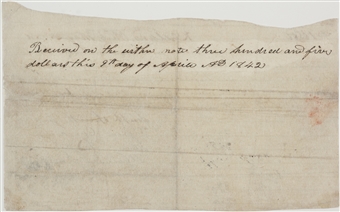 Received on the within note three hundred and five
dollars this 8th day of April AD 1842